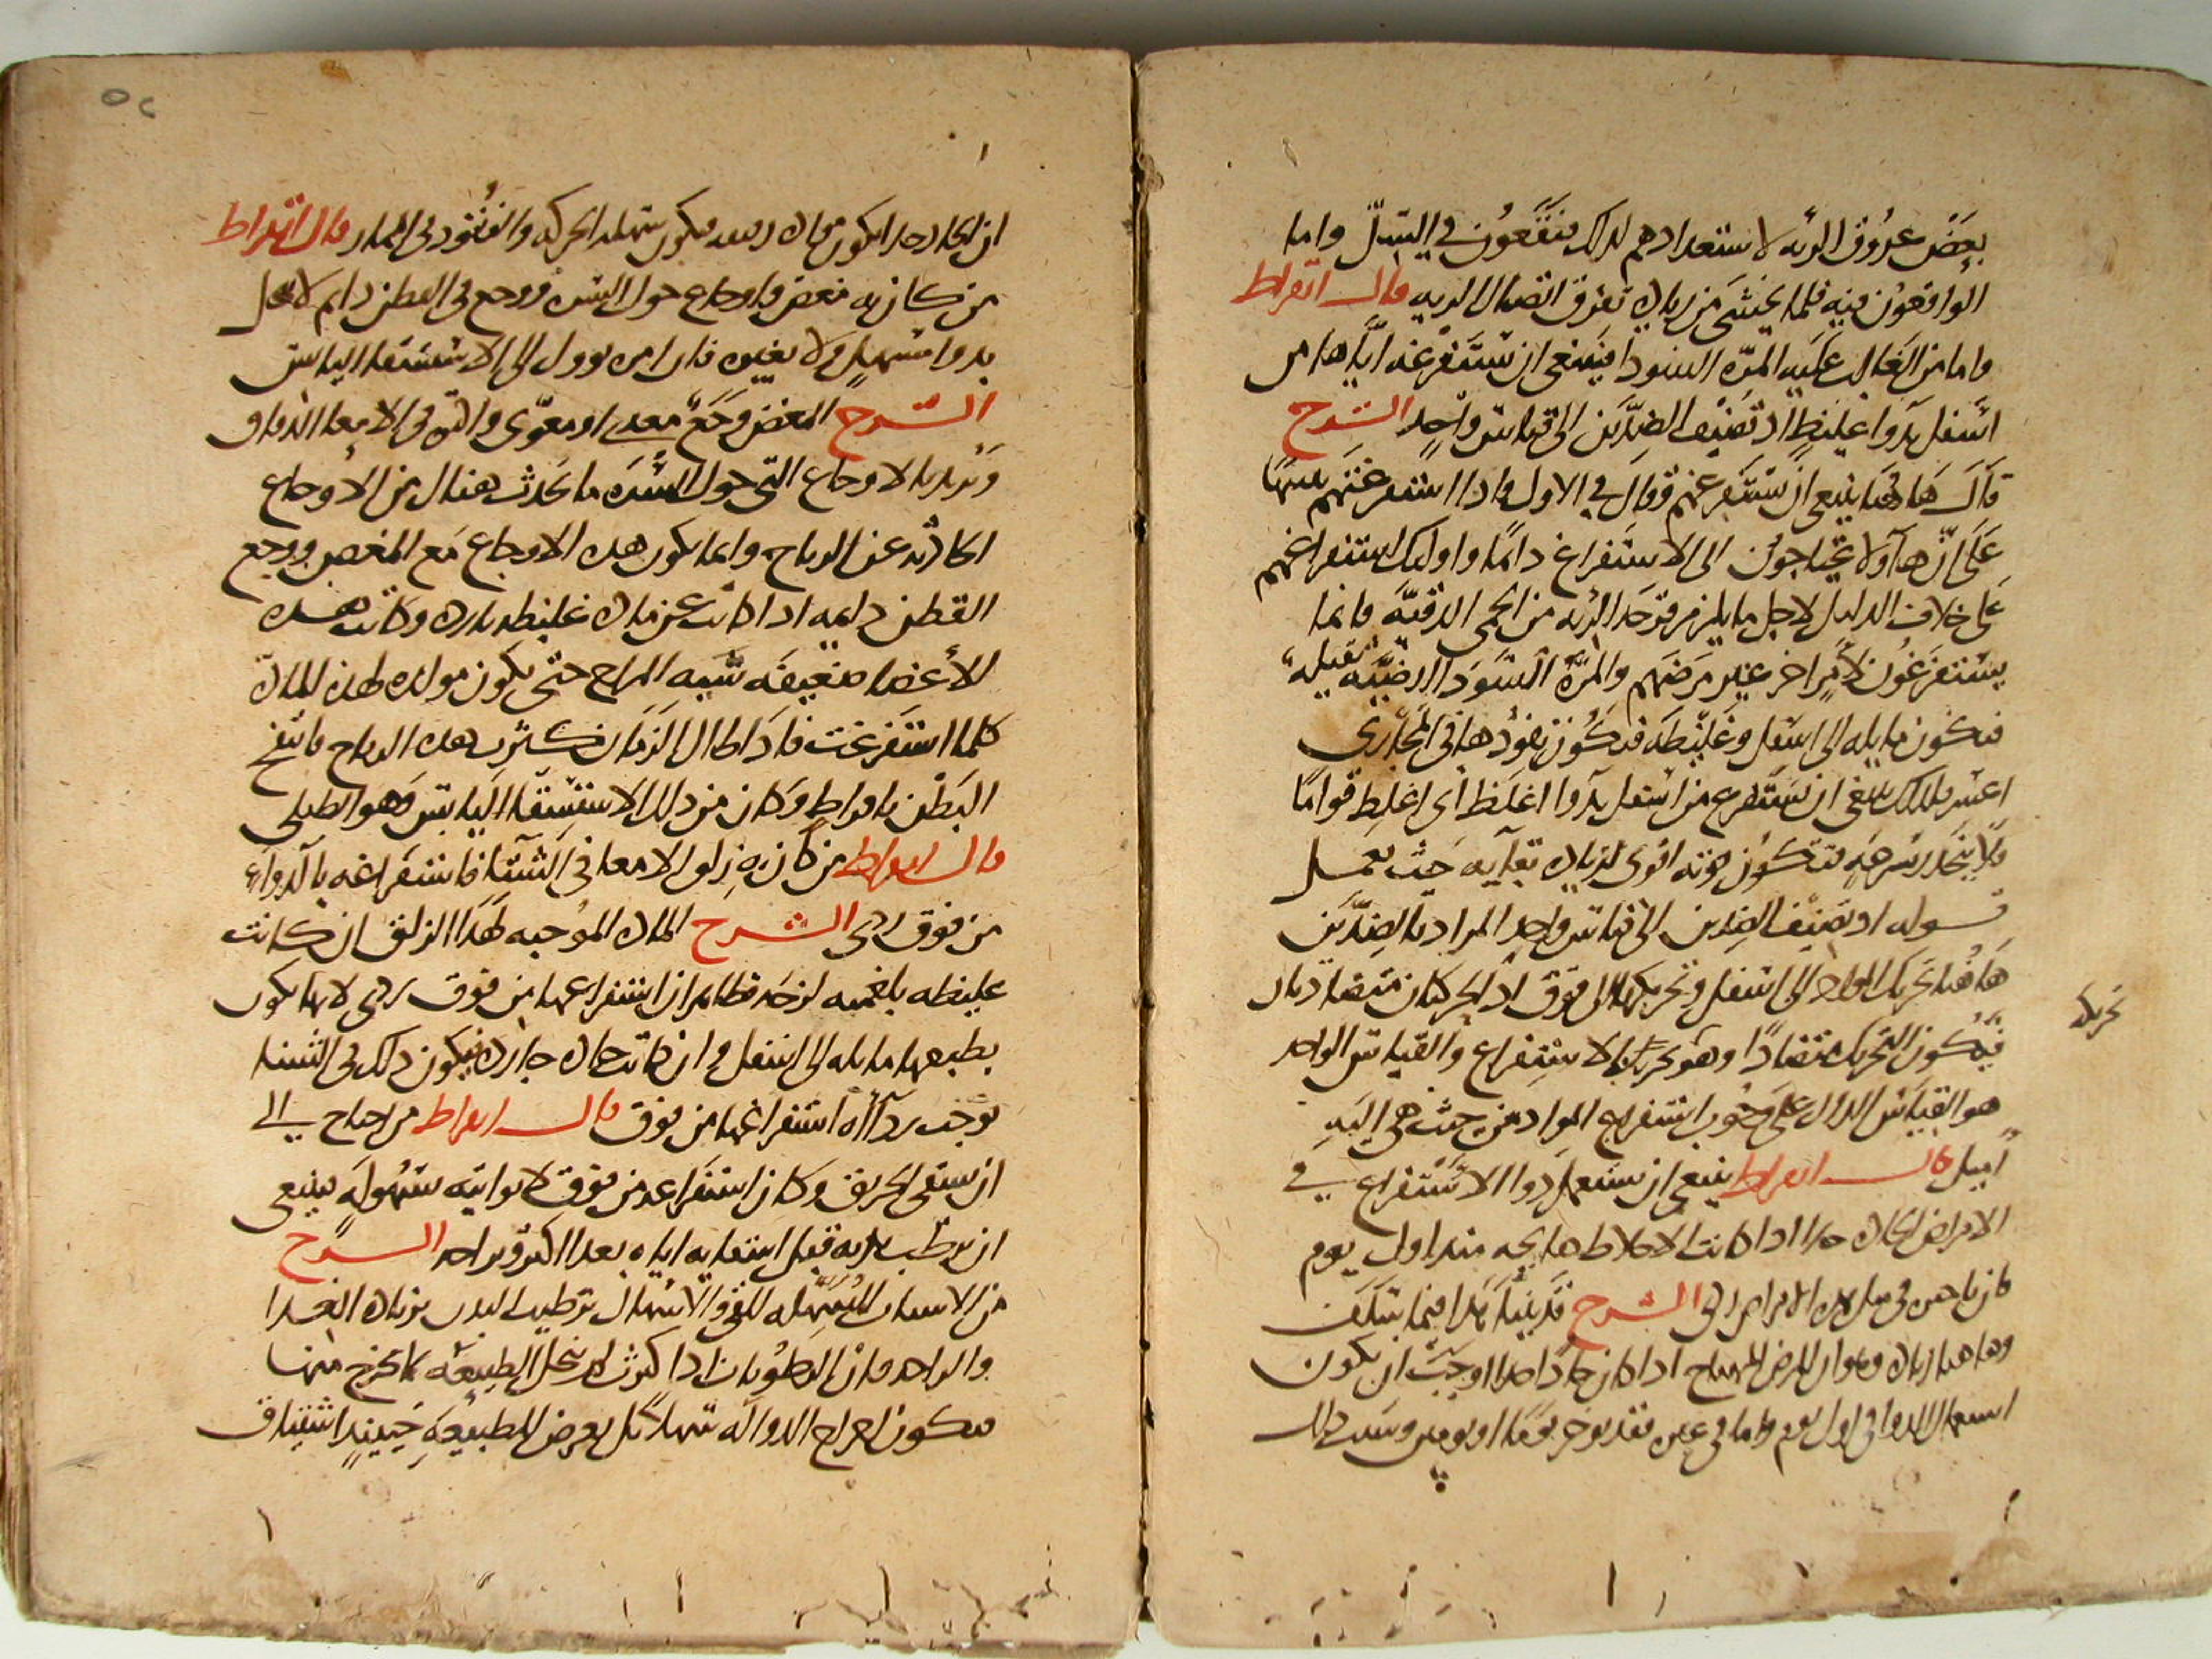 بعض عروق الرئه لاستعدادهم لذلك فيقعون في السّل واما
الواقعون فيه فلما يخشى من زياده تفرق اتصال الريه قال ابقراط
واما من الغالب عليه المرّه السودا فينبغى ان تستفرغه ايّاها من
اسفل بدوا غليظ اذ تضيف الضدّين الى قياس واحد الشرح
قال هاهنا ينبغى ان تستفرغهم وقال في الاول واذا استفرغتهم
على انّ هاولا يحتاجون الى الاستفراغ دائمًا واوليك استفراغهم
على خلاف الدليل لاجل ما يلزم قرحه الريه من الحمى الدقيّه فانما
يستفرغون لأمرٍ اخر غير مرضهم والمرّه السودا ارضيّه ثقيله
فتكون مايله الى اسفل وغليظه فيكون نفوذها في المجارى
اعسر فلذلك ينبغى ان تستفرغ من اسفل بدوا اغلظ اى اغلظ قوامًا
فلا ينحدر بسرعه فتكون قوته اقوى لزياده بقايه حيث يعمل
قوله اذ تضيف الضدين الى قياس واحد المراد بالضدّين
هاهنا تحريك المواد الى اسفل وتحريكها الى فوق اذ الحركتان متضادتان
تحريك
فيكون التحريك متضادًا وهو تحريك بالاستفراغ والقياس الواحد
هو القياس الدال على وجوب استفراغ المواد من حيث هى اليه
اميل قال ابقراط ينبغى ان يستعمل دوا الاستفراغ في
الامراض الحاده جدا اذا كانت الاخلاط هايجه منذ اول يوم
فان تاخيره في مثل هذه الامراض ردى الشرح قد بيّنا هذا فيما سلف
وهاهنا زياده وهو ان المرض المهياج اذا كان حادا جدا اوجب ان يكون
استعمال الدوا في اول يوم واما في غيره فقد يوخر يومًا او يومين وسبب ذلك
ان الحاد جدا يكون مادته فيكون سهله الحركه والنفوذ في المجار قال ابقراط
من كان به مغص واوجاع حول السره ووجع في القطن دايم لا ينحل
بدوا مسهل ولا بغيره فان امره يوول الى الاستسقا اليابس
الشرح المغص وجع معدى او معوّى واكثره في الامعا الدقاق
ونريد بالاوجاع التى حول السره ما يحدث هناك من الاوجاع
الحادثه عن الرياح وانما يكون هذه الاوجاع مع المغص ووجع
القطن دايمه اذا كانت عن ماده غليظه بارده وكانت هذه
الأعضا ضعيفه سيه المزاج حتى يكون مولده لهذه الماده
كلما استفرغت فاذا طال الزمان كثرت هذه الرياح فانتفخ
البطن بافراط وكان من ذلك الاستسقا اليابس وهو الطبلى
قال ابقراط من كان به زلق الامعا في الشتا فاستفراغه بالدواء
من فوق ردى الشرح الماده الموجبه لهذا الزلق ان كانت
غليظه بلغميه لزجه فظاهر ان استفراغها من فوق ردى لانها تكون
بطبعها مايله الى اسفل وان كانت حاده حاره فيكون ذلك في الشتا
يوجب رداه استفراغها من فوق قال ابقراط من احتاج الى
ان يسقى الخربق وكان استفراغه من فوق لا يواتيه بسهوله فينبغى
ان يرطب بدنه قبل استعماله اياه بغدا اكثر وبراحه الشرح
من الاسباب المسهّله للقى والاسهال ترطيب البدن بزياده الغدا
والراحه فان الرطوبات اذا كثرت لم تبخل الطبيعه بما تخرج منها
فيكون اخراج الدوا له سهلاً بل يعرض للطبيعه حينيذٍ اشتياق